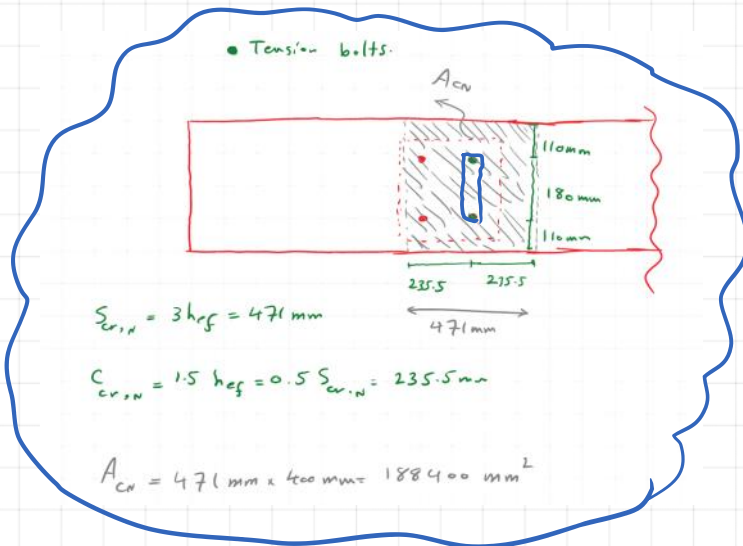 • Tension bolts.
A_CN
110mm
180mm
110mm
235.5 235.5
471mm
S_cr,N = 3hef = 471 mm
C_cr,N = 1.5 hef = 0.5 S_cr.N = 235.5mm
A_CN = 471 mm x 400 mm = 188400 mm²